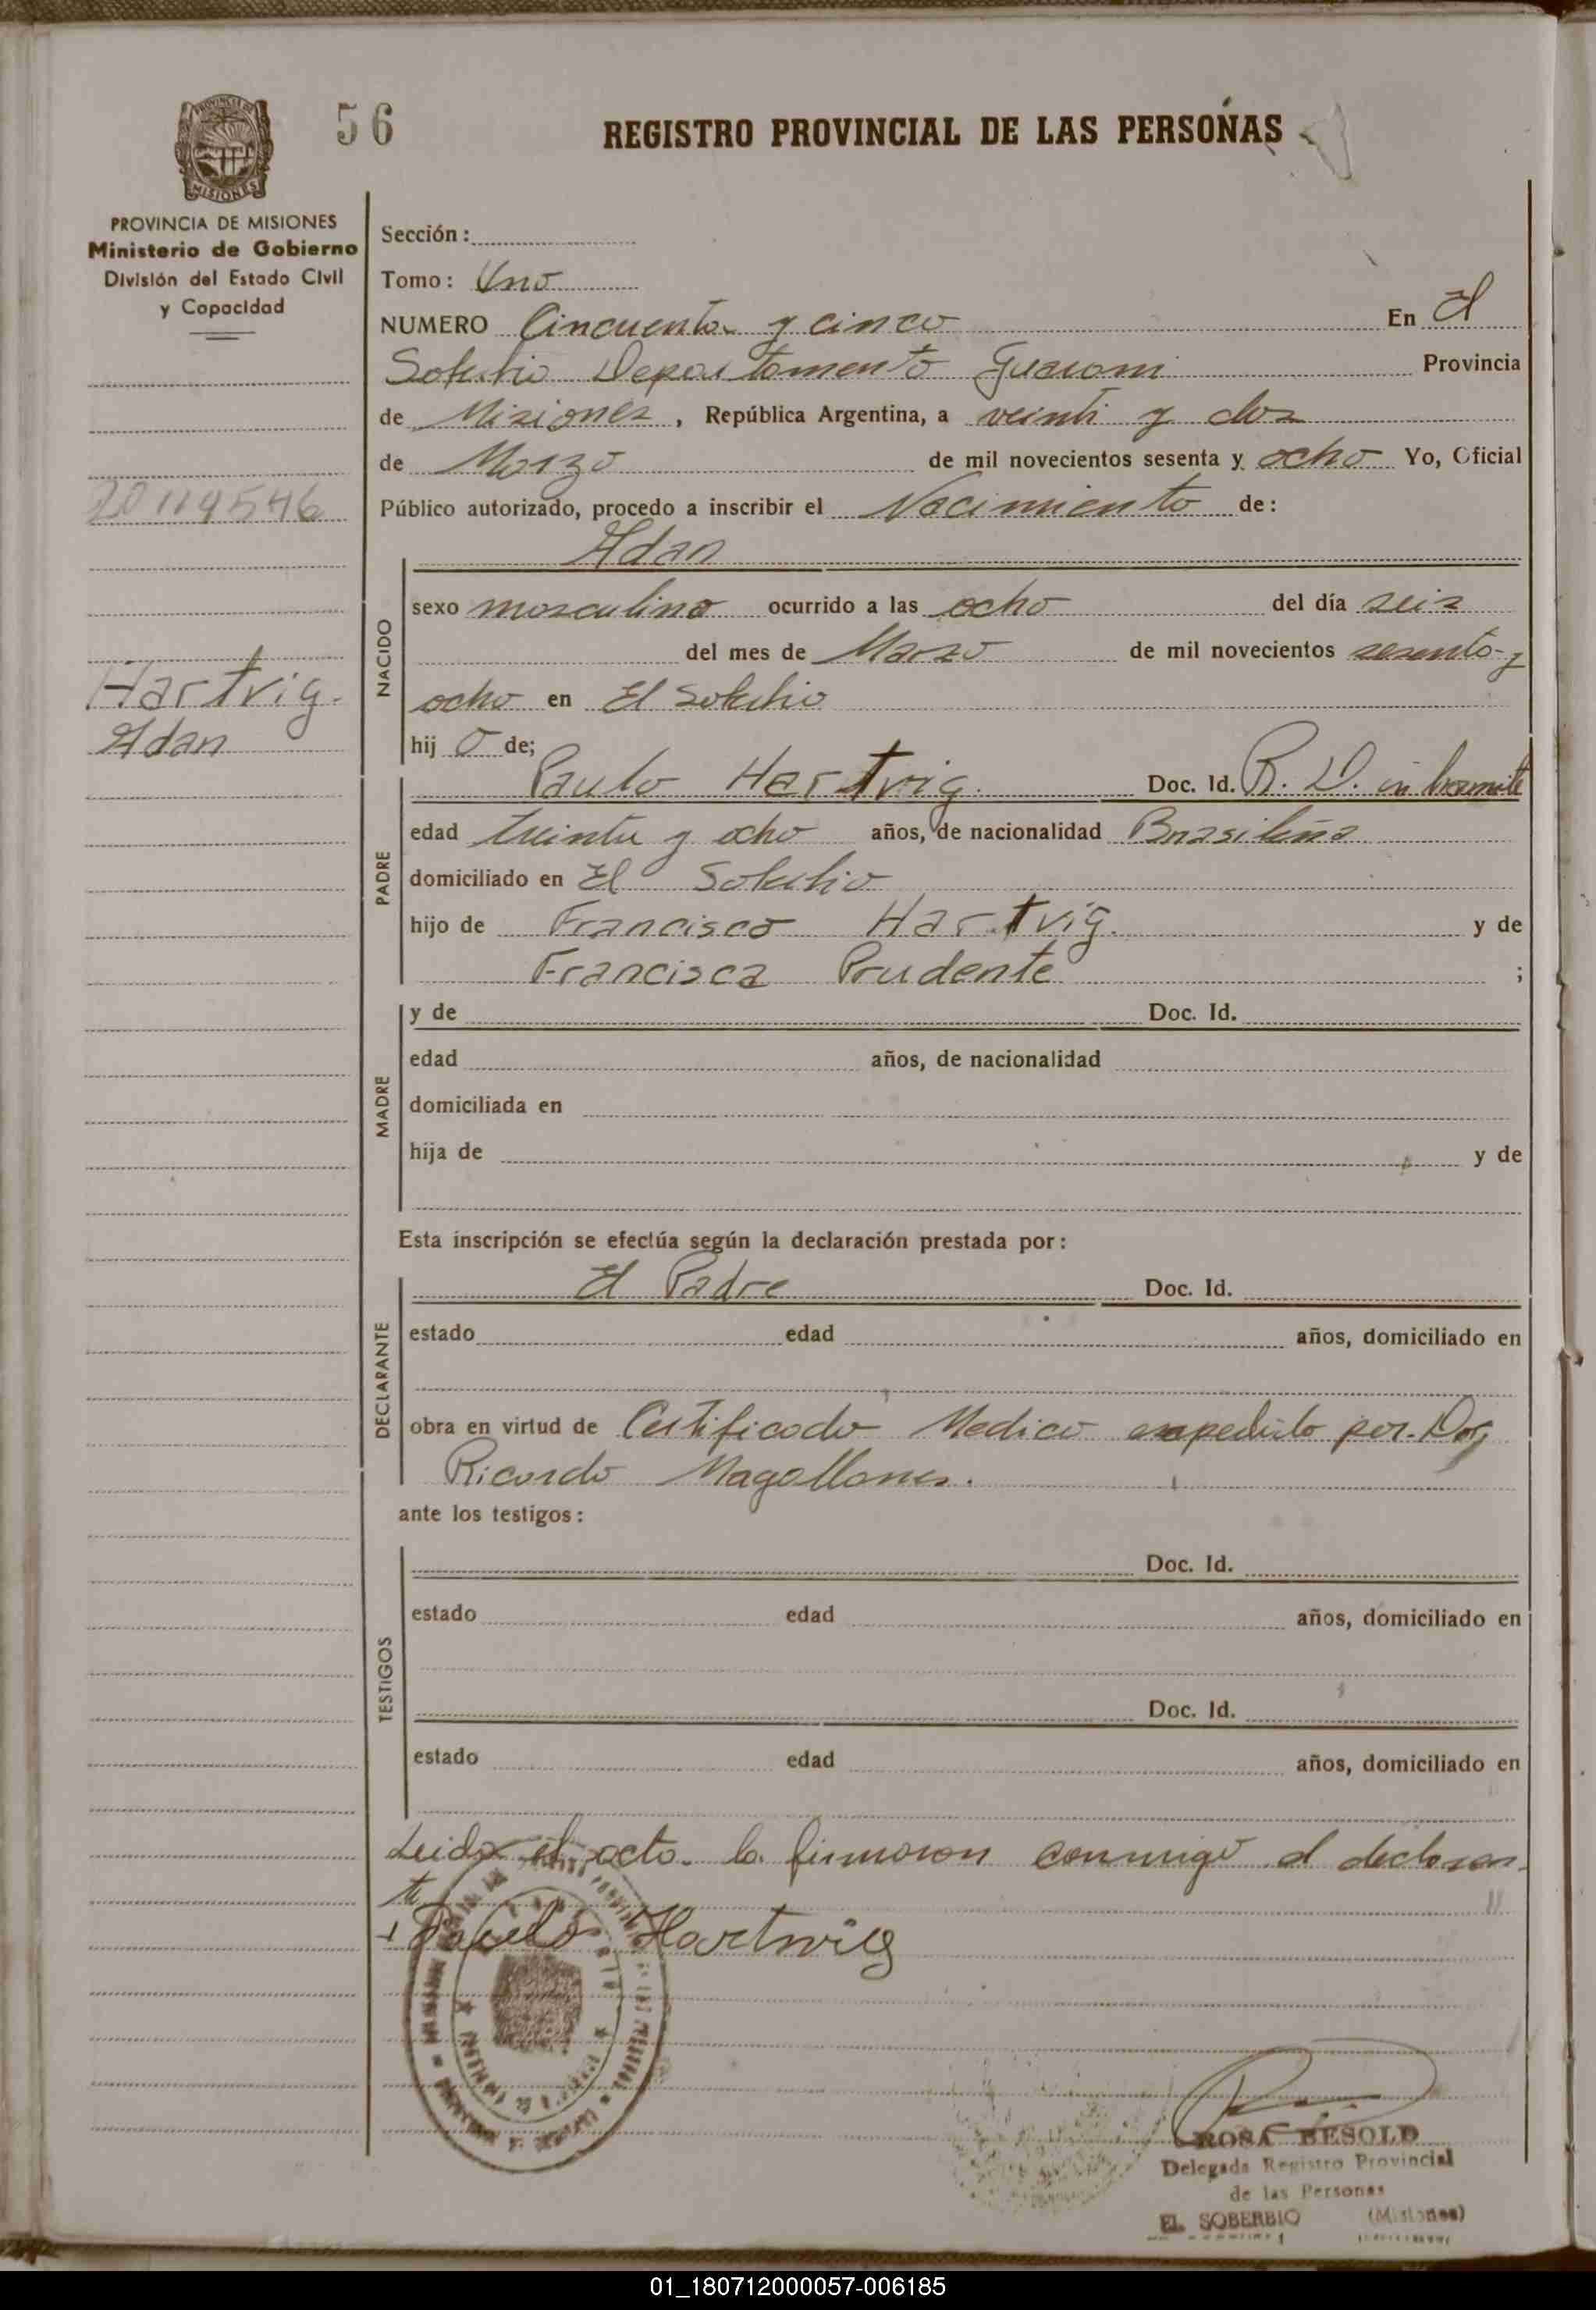 56
REGISTRO PROVINCIAL DE LAS PERSONAS
PROVINCIA DE MISIONES
Ministerio de Gobierno
División del Estado Civil
y Capacidad
20119546
Hartvig.
Adan
Sección:
Tomo: Uno
NUMERO Cincuenta y cinco En El
Soberbio Departamento Guarani Provincia
de Misiones, República Argentina, a veinti y dos
de Marzo de mil novecientos sesenta y ocho Yo, Oficial
Público autorizado, procedo a inscribir el Nacimiento de:
Adan
NACIDO
sexo masculino ocurrido a las ocho del día seis
del mes de Marzo de mil novecientos sesenta y
ocho en El Soberbio
hijo de;
PADRE
Paulo Hartvig. Doc. Id. R. D. en tramite
edad treinta y ocho años, de nacionalidad Brasileña
domiciliado en El Soberbio
hijo de Francisco Hartvig. y de
Francisca Prudente ;
MADRE
y de Doc. Id.
edad años, de nacionalidad
domiciliada en
hija de y de
Esta inscripción se efectúa según la declaración prestada por:
DECLARANTE
El Padre Doc. Id.
estado edad años, domiciliado en
obra en virtud de Certificado Medico expedido por
Ricardo Magallanes.
ante los testigos:
TESTIGOS
Doc. Id.
estado edad años, domiciliado en
Doc. Id.
estado edad años, domiciliado en
Leida el acta la firmaron conmigo el declaran-
te
Paulo Hartwig
ROSA BESOLD
Delegada Registro Provincial
de las Personas
EL SOBERBIO (Misiones)
01_180712000057-006185